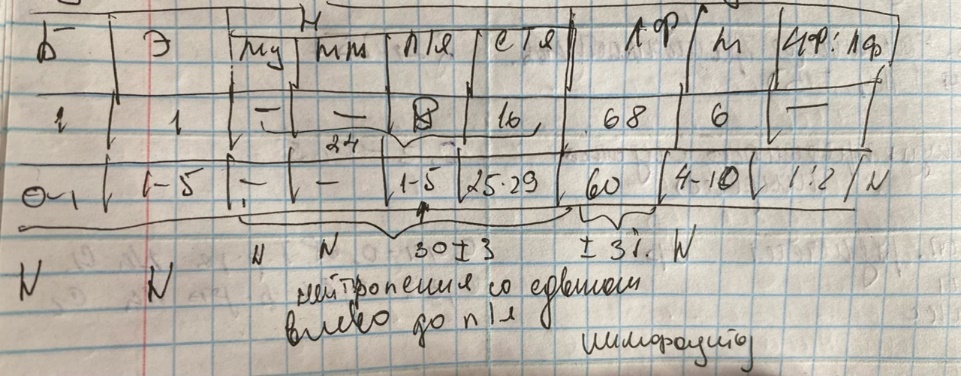 Н
Б Э мц мм п/я с/я ЛФ м ЦФ:ЛФ
1 1 – – 8 16 68 6 –
24
0-1 1-5 – – 1-5 25-29 60 4-10 1:2 N
N N 30±3 ±3%. N
N N нейтропения со сдвигом
влево до п/я